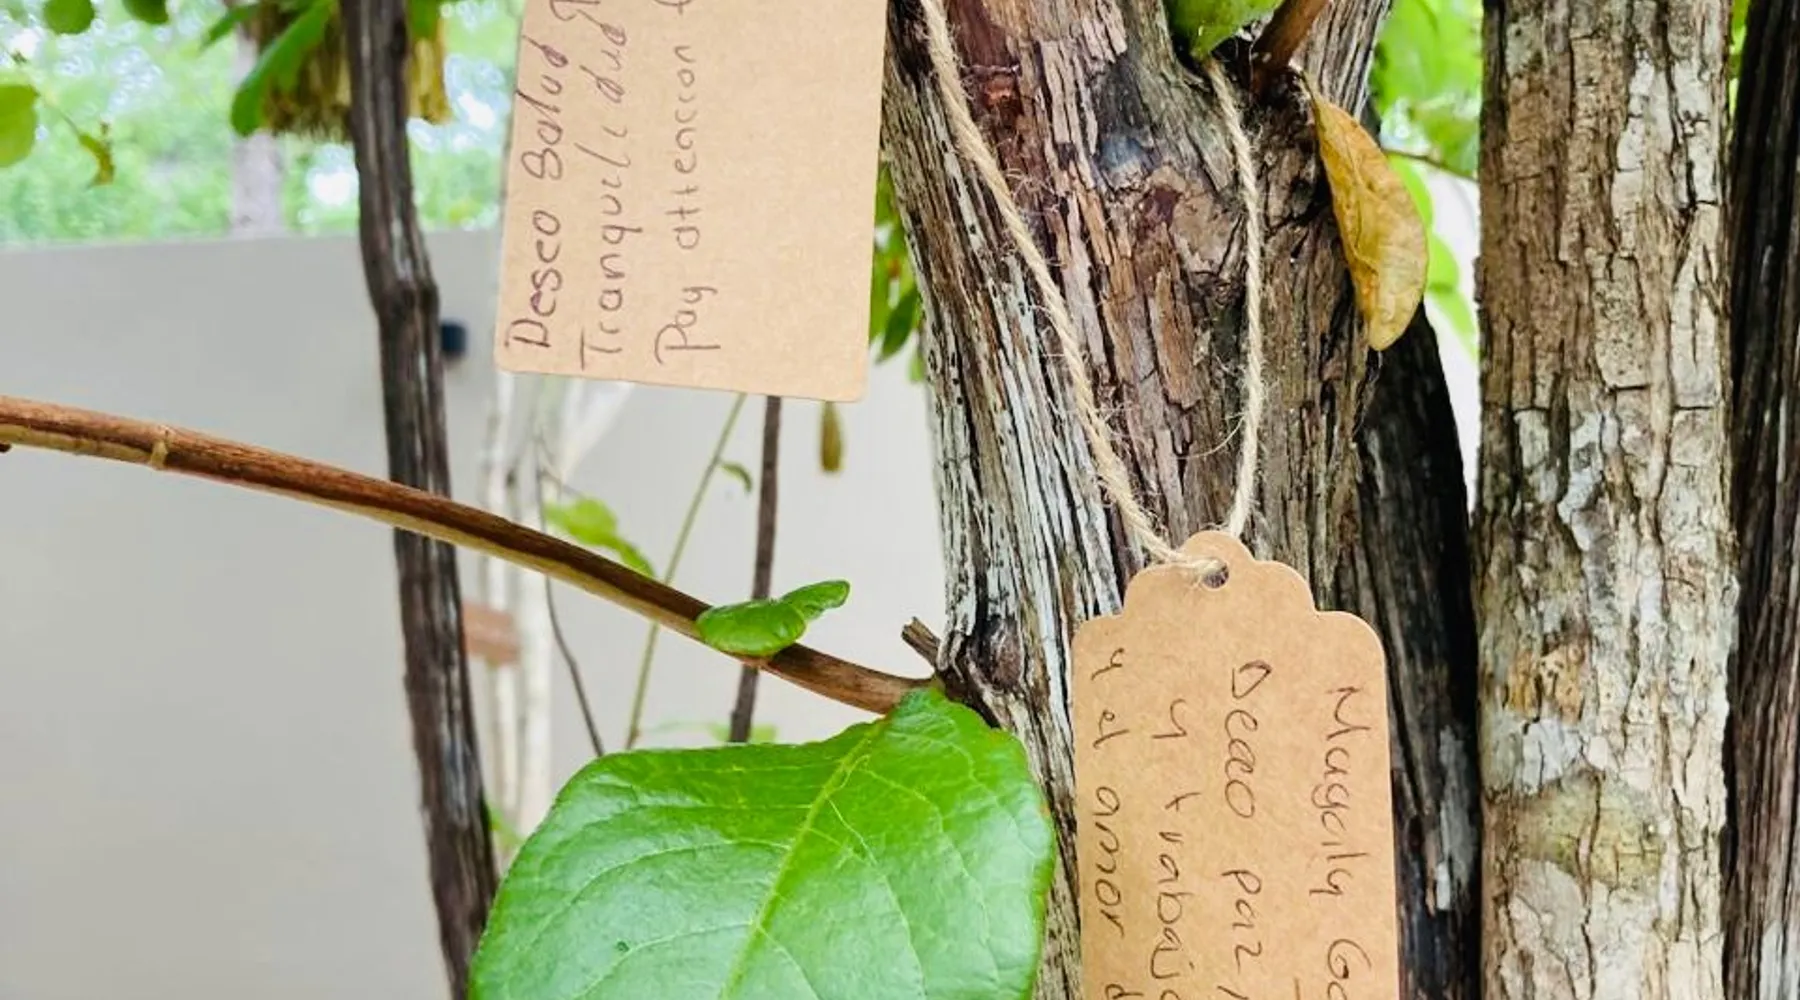 Deseo Salud
Tranquilidud
Pay attencion
Magaly
Deceo paz
y trabajo
y el amor